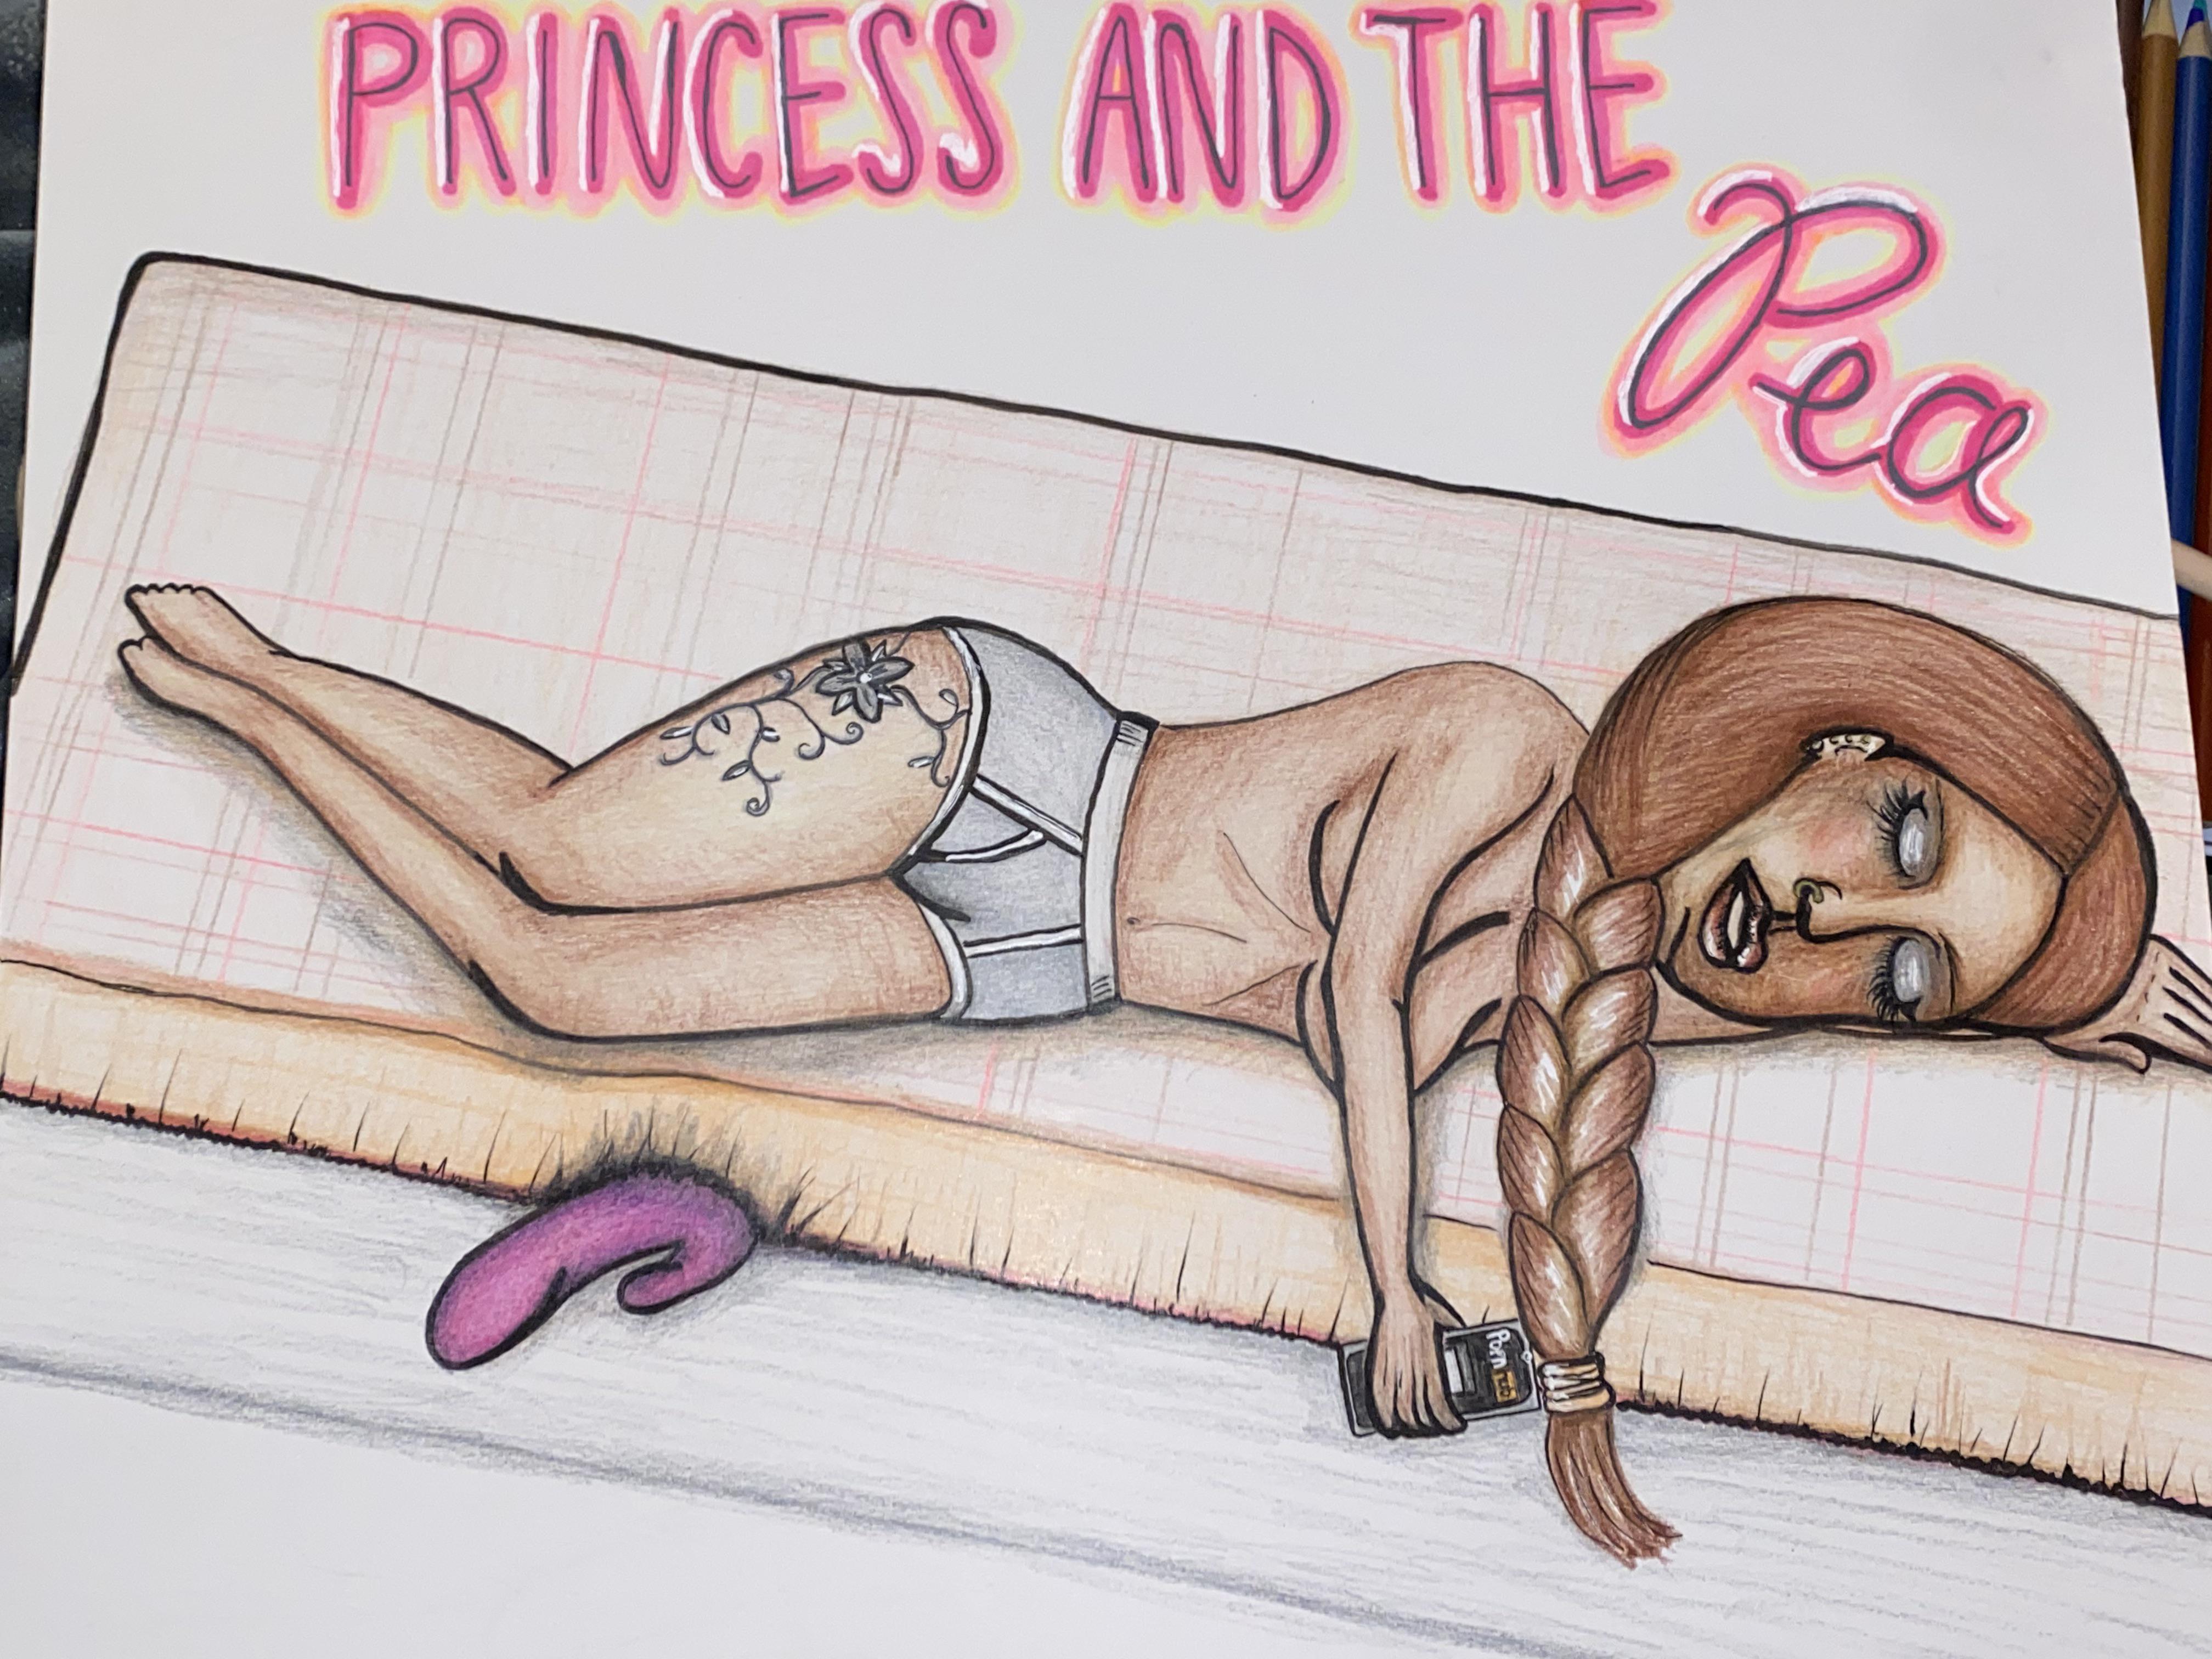 PRINCESS AND THE
Pea
Porn